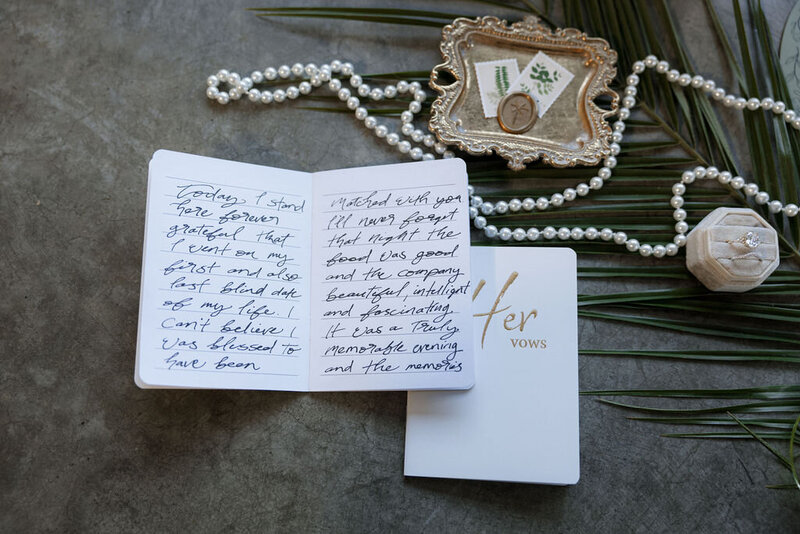 Today, I stand
here forever
grateful that
I went on my
first and also
last blind date
of my life. I
Can't believe I
was blessed to
have been
Matched with you
I'll never forget
that night the
food was good
and the company
beautiful, intelligent
and fascinating.
It was a Truly
memorable evening
and the memories
Her
VOWS